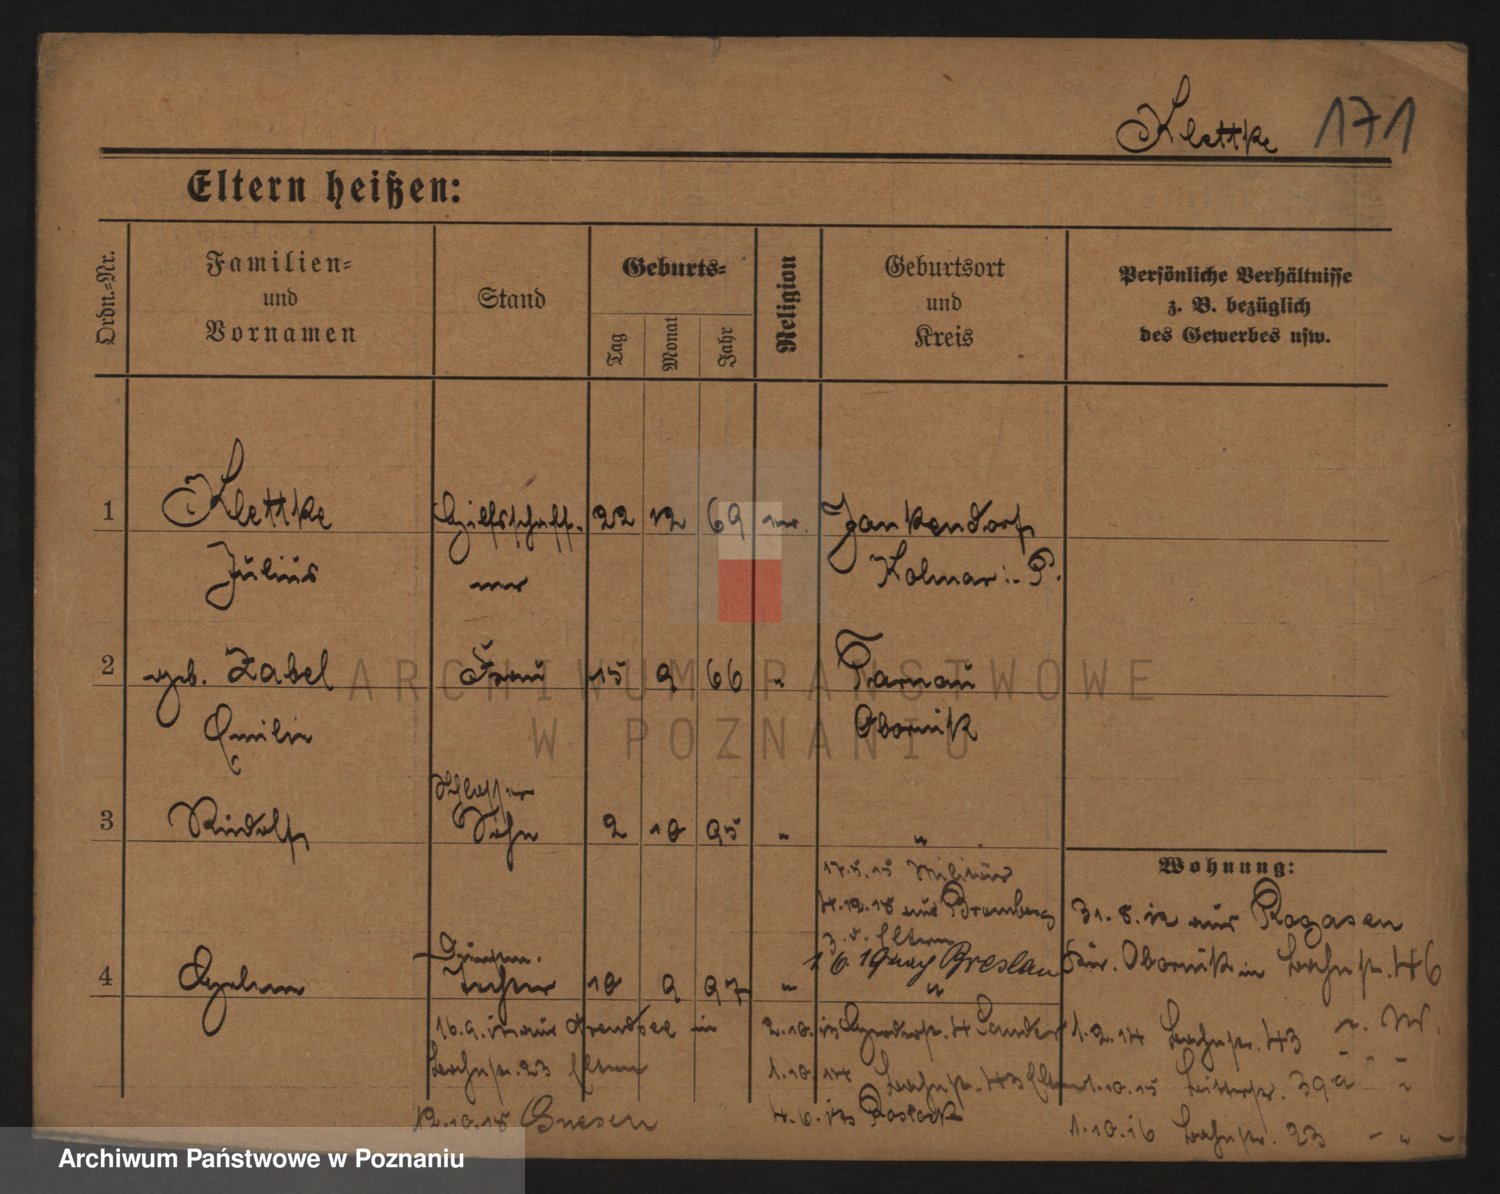 Klettke 171
Eltern heißen:
Ordn.-Nr.
Familien-
und
Vornamen
Stand
Geburts-
Tag
Monat
Jahr
Religion
Geburtsort
und
Kreis
Persönliche Verhältnisse
z. B. bezüglich
des Gewerbes usw.
1 Klettke Hilfsschaff- 22 12 69 Jankendorf
Julius ner Kolmar i. P.
2 geb. Zabel Frau 15 9 66 " Tarnau
Emilie Obornik
Schlosser
3 Rudolf Sohn 2 10 95 " "
17.5.15 Militär
4.12.18 aus Bromberg
z. d. Eltern
1.6.19 nach Breslau
Wohnung:
31.8.12 aus Rogasen
Kr. Obornik in Bahnstr. 46
4 Tochter 10 9 97 " "
16.9. aus Arendsee in
Bahnstr. 23 Eltern
12.10.18 Gnesen
2.10. 4 Sander
1.10.14 Bahnstr. 43 Eltern
4.6. Rostock
1.2.14 Bahnstr. 43
1.10.15 39a "
1.10.16 Bahnstr. 23 - " -
ARCHIWUM PAŃSTWOWE
W POZNANIU
Archiwum Państwowe w Poznaniu